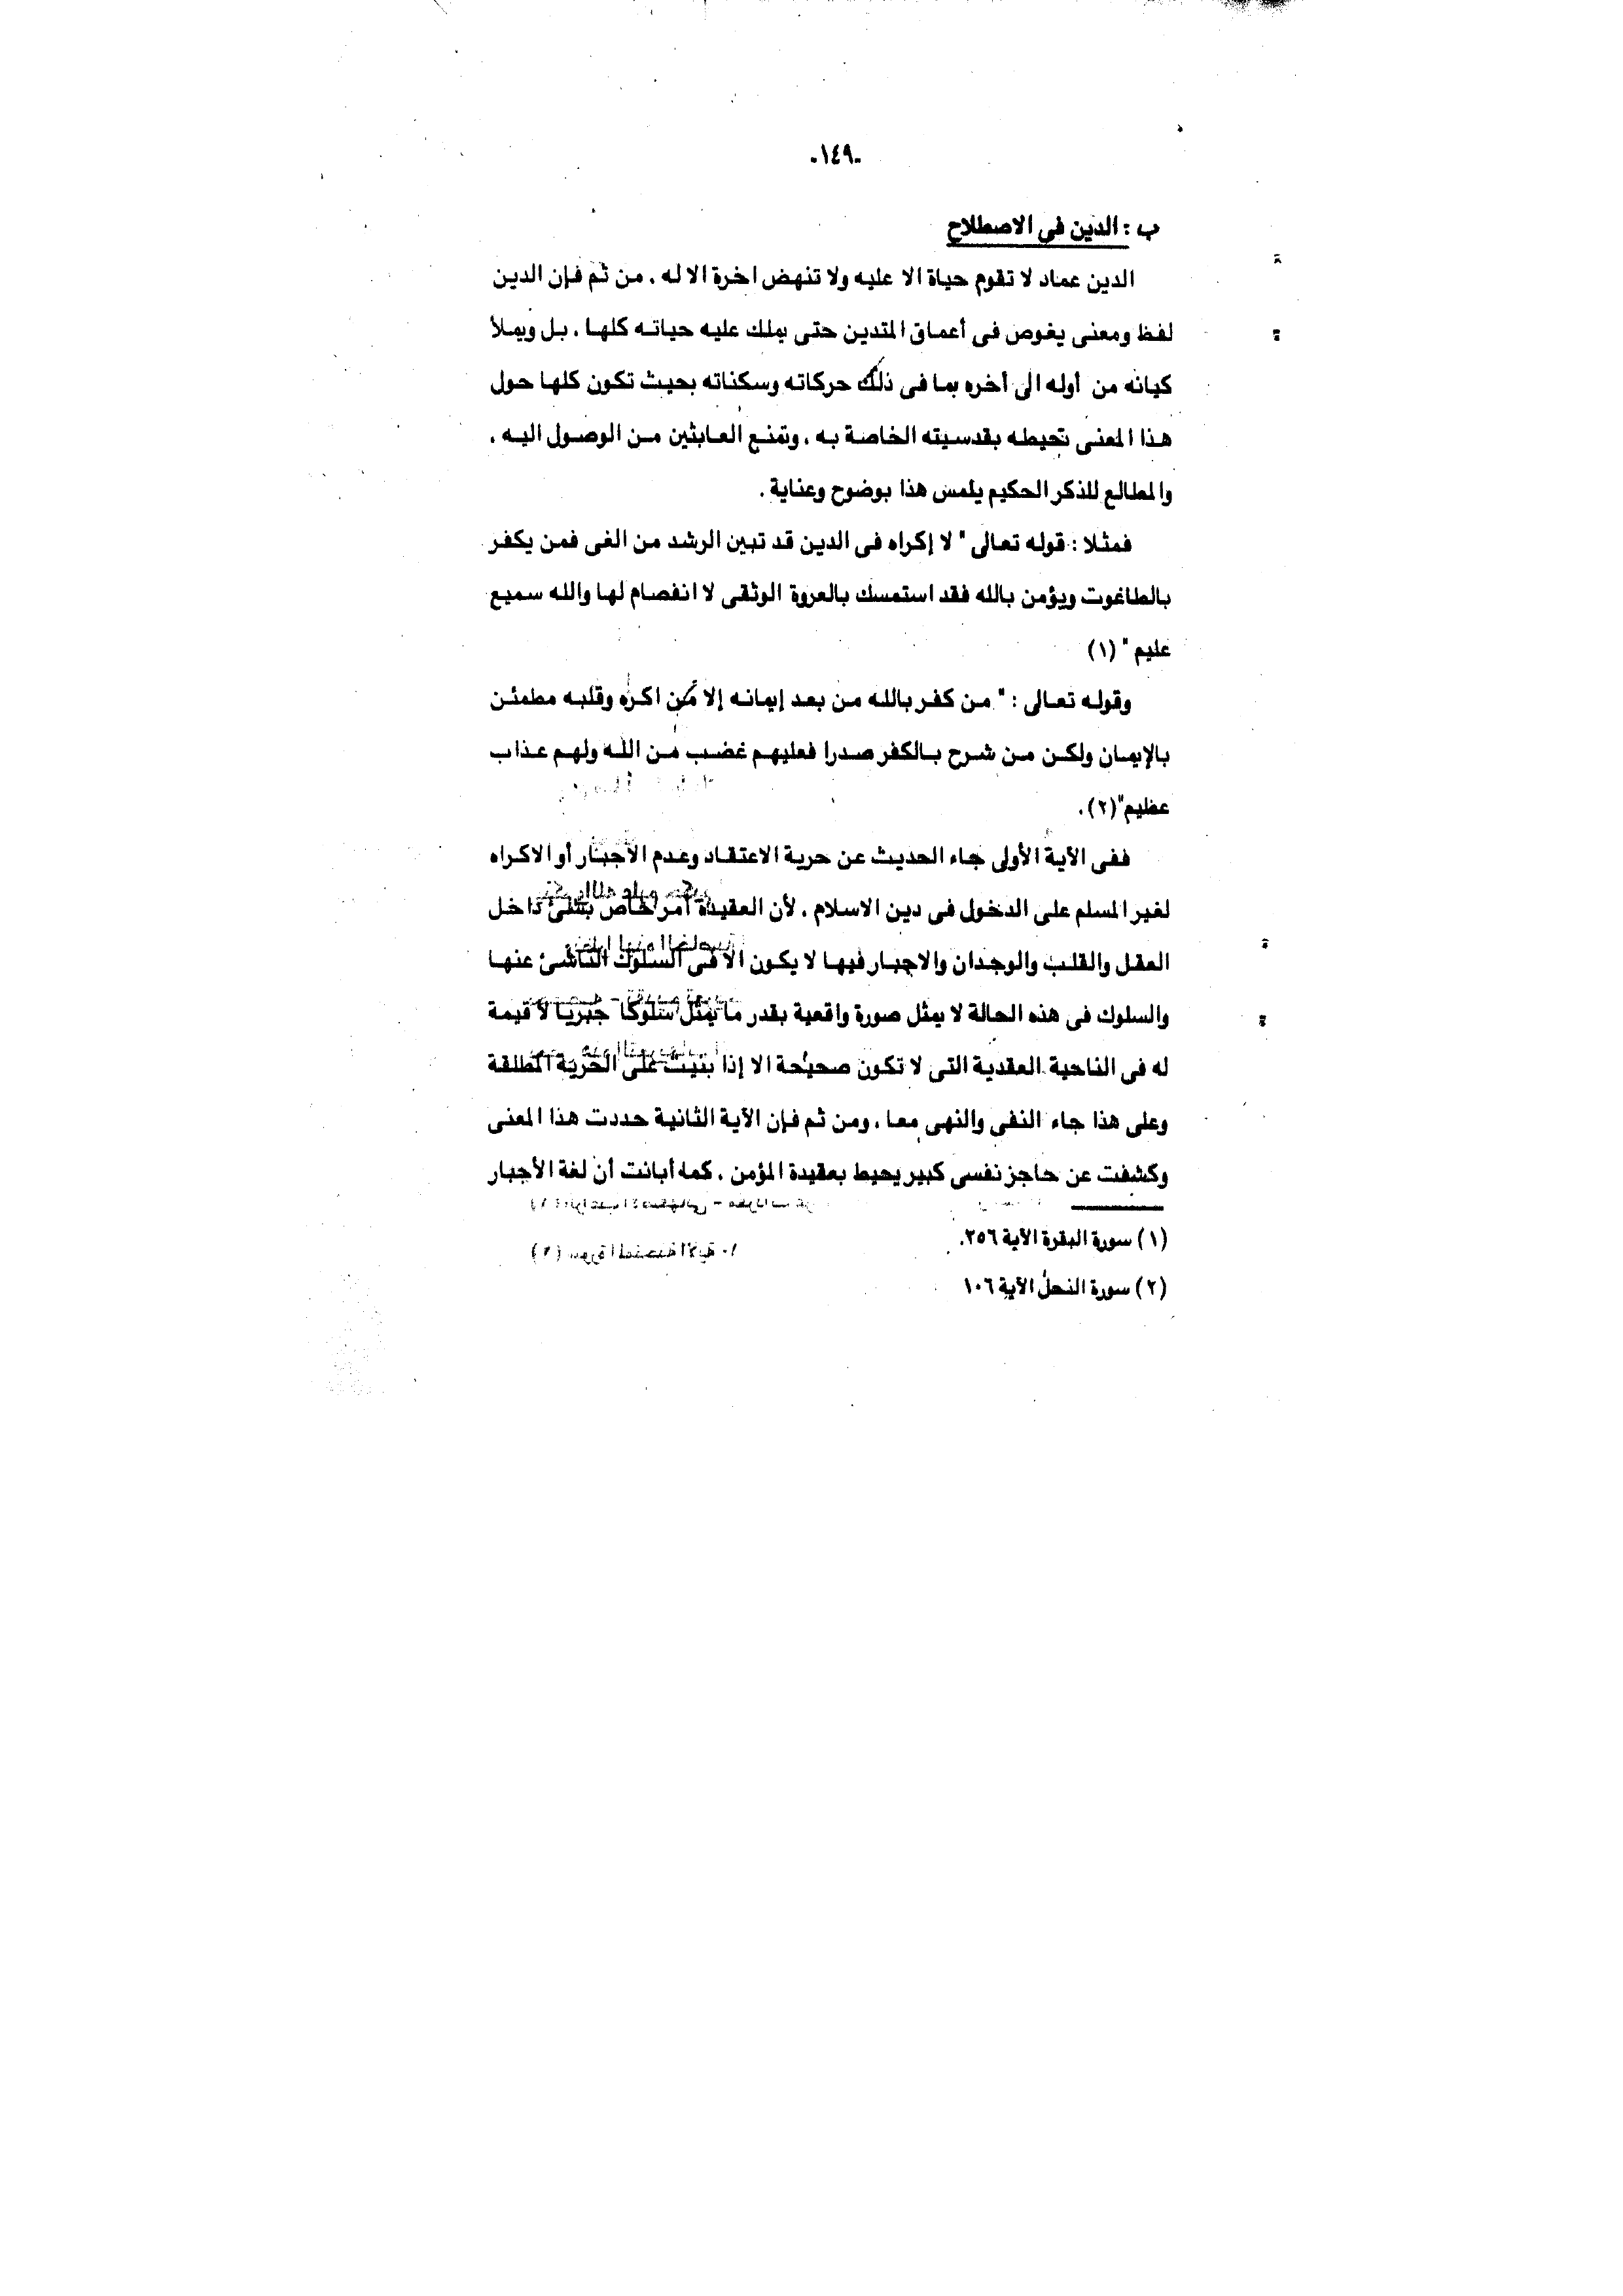 -١٤٩-
ب : الدين فى الاصطلاح
الدين عماد لا تقوم حياة الا عليه ولا تنهض اخرة الا له . من ثم فإن الدين
لفظ ومعنى يغوص فى أعماق المتدين حتى يملك عليه حياته كلها . بل ويملأ
كيانه من أوله الى أخره بما فى ذلك حركاته وسكناته بحيث تكون كلها حول
هذا المعنى تحيطه بقدسيته الخاصة به . وتمنع العابثين من الوصول اليه .
والمطالع للذكر الحكيم يلمس هذا بوضوح وعناية .
فمثلا : قوله تعالى " لا إكراه فى الدين قد تبين الرشد من الغى فمن يكفر
بالطاغوت ويؤمن بالله فقد استمسك بالعروة الوثقى لا انفصام لها والله سميع
عليم " (١)
وقوله تعالى : " من كفر بالله من بعد إيمانه إلا من اكره وقلبه مطمئن
بالإيمان ولكن من شرح بالكفر صدرا فعليهم غضب من الله ولهم عذاب
عظيم" (٢) .
ففى الآية الأولى جاء الحديث عن حرية الاعتقاد وعدم الأجبار أو الاكراه
لغير المسلم على الدخول فى دين الاسلام . لأن العقيدة أمر خاص بشئ داخل
العقل والقلب والوجدان والاجبار فيها لا يكون الا فى السلوك الناشئ عنها
والسلوك فى هذه الحالة لا يمثل صورة واقعية بقدر ما يمثل سلوكا جبريا لا قيمة
له فى الناحية العقدية التى لا تكون صحيحة الا إذا بنيت على الحرية المطلقة
وعلى هذا جاء النفى والنهى معا . ومن ثم فإن الآية الثانية حددت هذا المعنى
وكشفت عن حاجز نفسى كبير يحيط بعقيدة المؤمن . كما أبانت أن لغة الأجبار
(١) سورة البقرة الآية ٢٥٦.
(٢) سورة النحل الآية ١٠٦